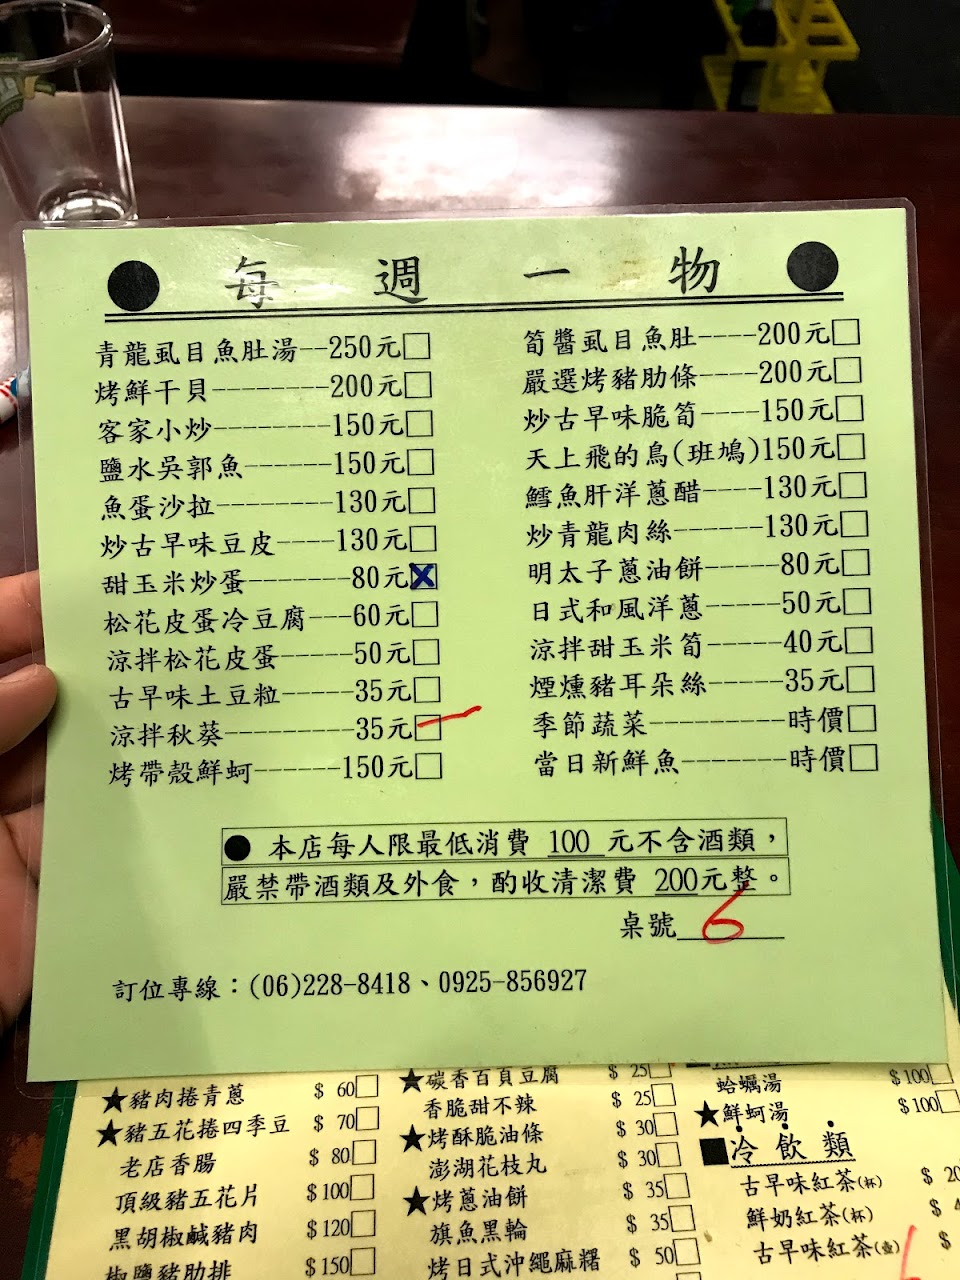 每週一物
青龍虱目魚肚湯--250元□
烤鮮干貝--------200元□
客家小炒--------150元□
鹽水吳郭魚------150元□
魚蛋沙拉--------130元□
炒古早味豆皮----130元□
甜玉米炒蛋-------80元☒
松花皮蛋冷豆腐---60元□
涼拌松花皮蛋-----50元□
古早味土豆粒-----35元□
涼拌秋葵---------35元□
烤帶殼鮮蚵------150元□
筍醬虱目魚肚----200元□
嚴選烤豬肋條----200元□
炒古早味脆筍----150元□
天上飛的鳥(班鳩)150元□
鱈魚肝洋蔥醋----130元□
炒青龍肉絲------130元□
明太子蔥油餅-----80元□
日式和風洋蔥-----50元□
涼拌甜玉米筍-----40元□
煙燻豬耳朵絲-----35元□
季節蔬菜---------時價□
當日新鮮魚-------時價□
●本店每人限最低消費 100 元不含酒類，
嚴禁帶酒類及外食，酌收清潔費 200元整。
桌號 6
訂位專線：(06)228-8418、0925-856927
★豬肉捲青蔥 $ 60□
★豬五花捲四季豆 $ 70□
老店香腸 $ 80□
頂級豬五花片 $100□
黑胡椒鹹豬肉 $120□
椒鹽豬肋排 $150□
★碳香百頁豆腐 $ 25□
香脆甜不辣 $ 25□
★烤酥脆油條 $ 30□
澎湖花枝丸 $ 30□
★烤蔥油餅 $ 35□
旗魚黑輪 $ 35□
烤日式沖繩麻糬 $ 50□
蛤蠣湯 $100□
★鮮蚵湯 $100□
■冷飲類
古早味紅茶(杯) $ 20
鮮奶紅茶(杯) $
古早味紅茶(壺) $